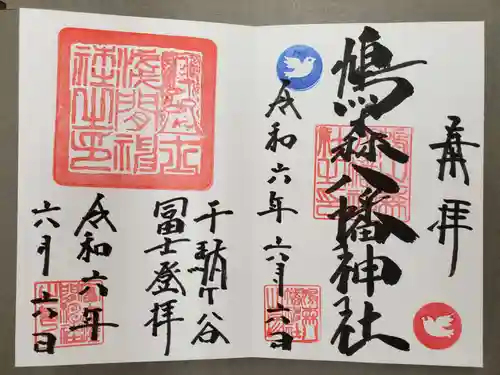 奉拝
鳩森八幡神社
令和六年六月六日
千駄ケ谷
冨士登拝
令和六年
六月六日